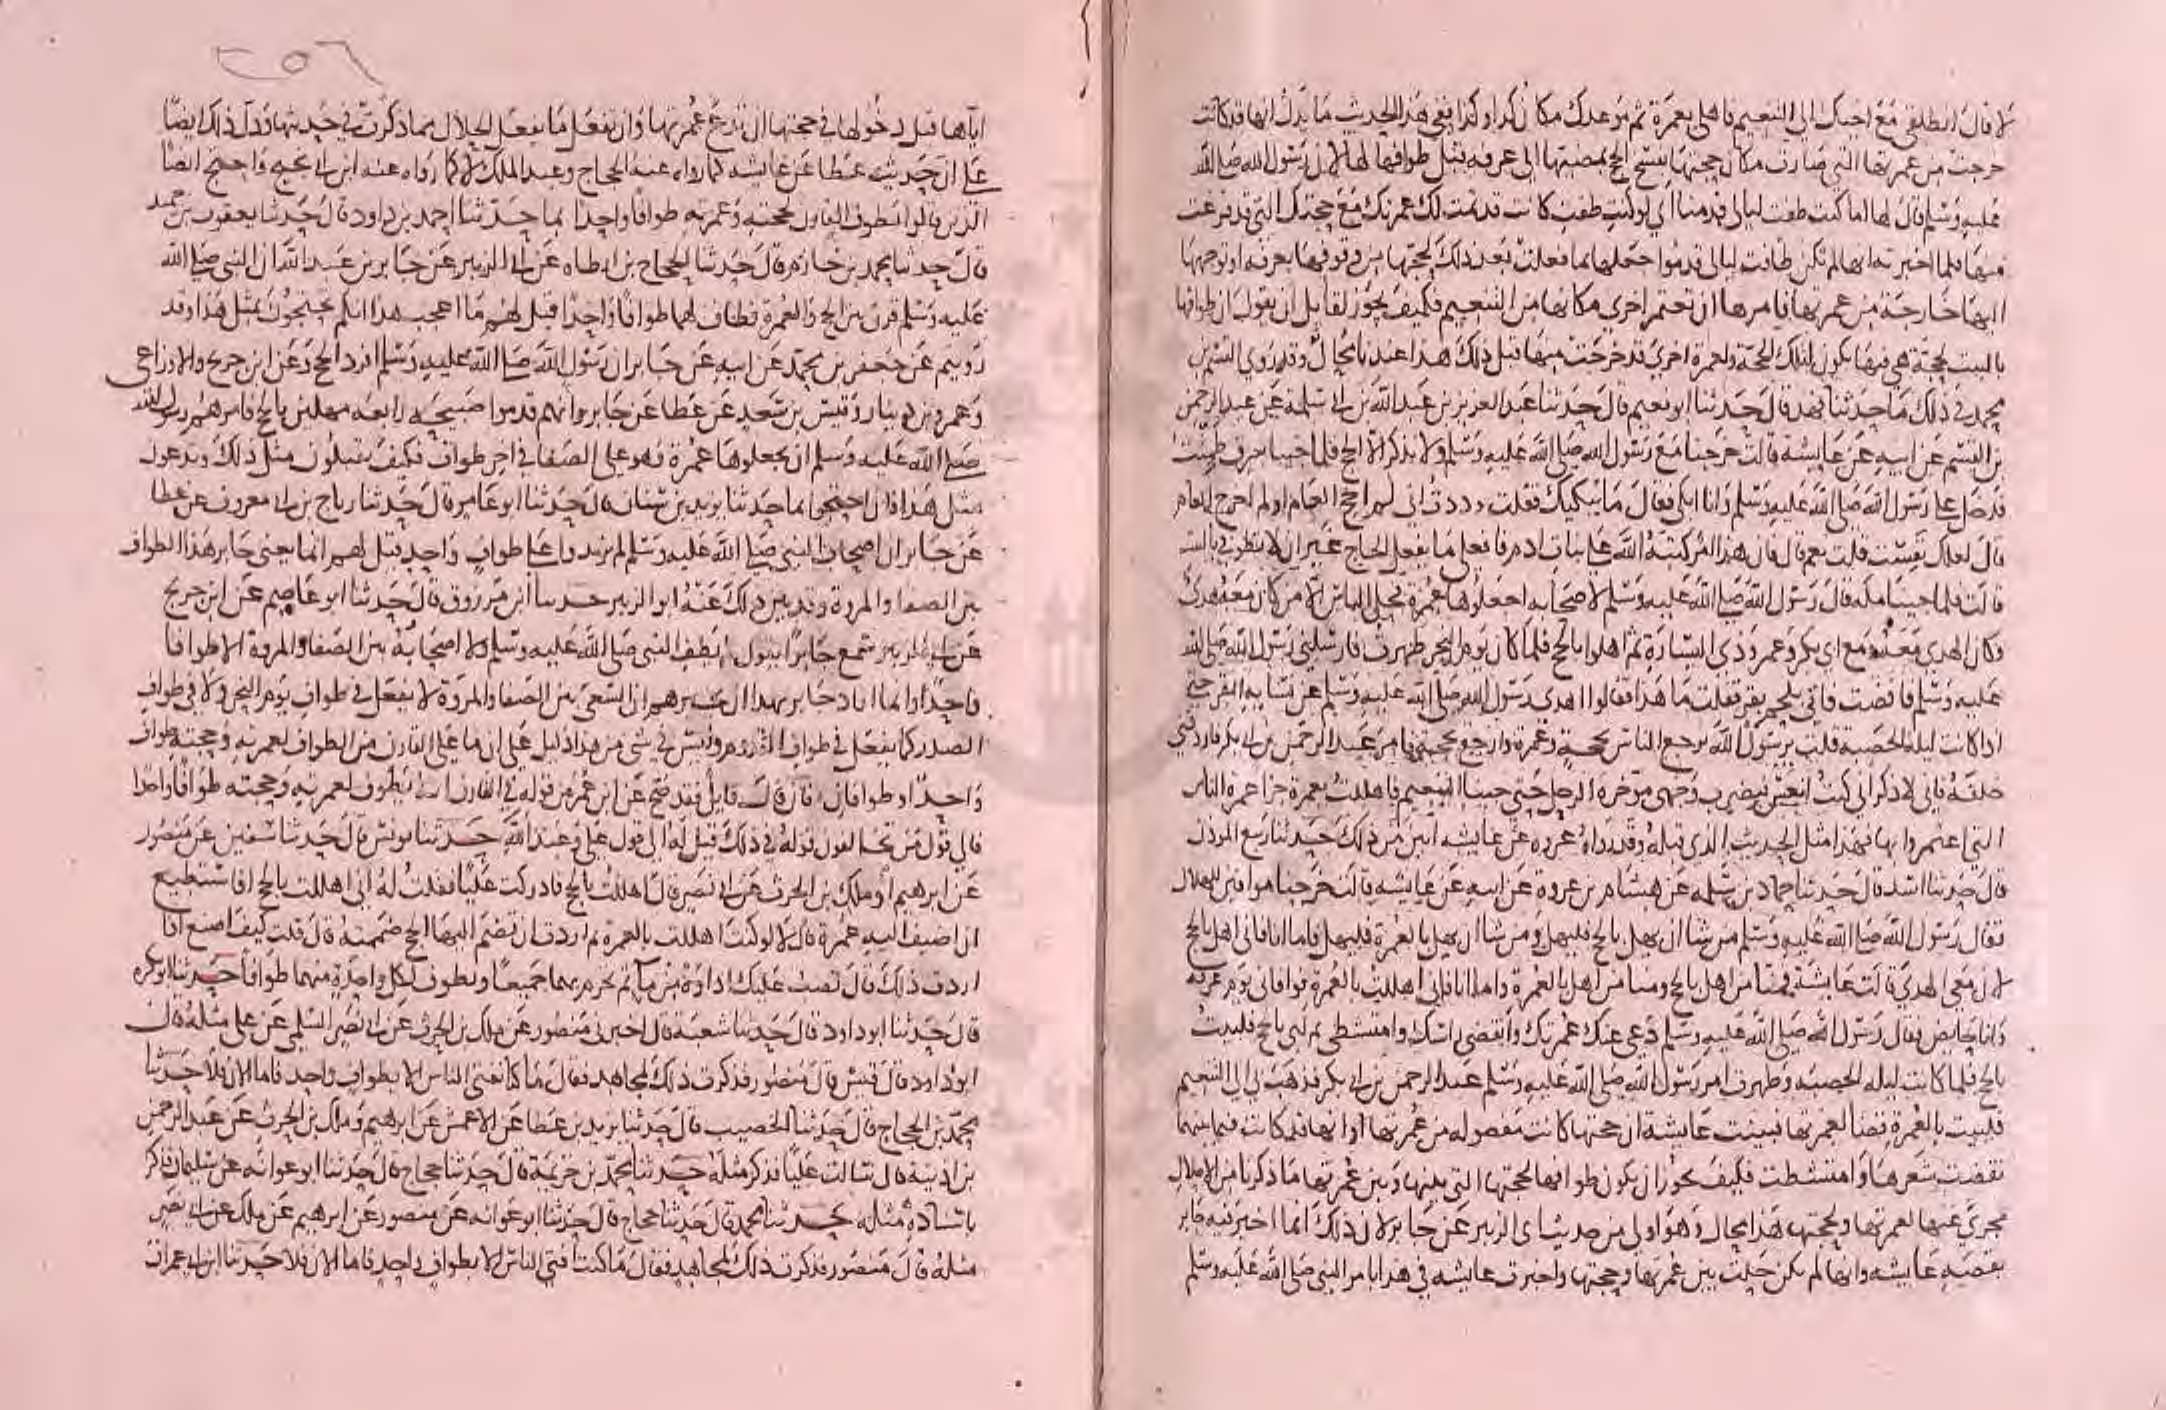 لا قال انطلقي مع اخيك الي التنعيم فاهلي بعمرة ثم موعدك مكان كذا وكذا ففي هذا الحديث ما يدل انها قد كانت
خرجت من عمرتها التي صارت مكان حجتها بفسخ الحج بمضيها الي عرفه قبل طوافها لها لان رسول الله صلي الله
عليه وسلم قال لها اما كنت طفت ليالي قدمنا اي لو كنت طفت كانت قد تمت لك عمرتك مع حجتك التي قد فرغت
منها فلما اخبرته انها لم تكن طافت ليالي قدموا جعلها بما فعلت بعد ذلك لحجتها من وقوفها بعرفه او توجهها
اليها خارجة من عمرتها فامرها ان تعتمر اخري مكانها من التنعيم فكيف يجوز لقايل ان يقول ان طوافها
بالبيت لحجة هي فيها يكون لتلك الحجة ولعمرة اخري قد خرجت منها قبل ذلك هذا عندنا محال وقد روي القسم بن
محمد في ذلك ما حدثنا فهد قال حدثنا ابو نعيم قال حدثنا عبد العزيز بن عبد الله بن ابي سلمة عن عبد الرحمن
بن القسم عن ابيه عن عايشة قالت خرجنا مع رسول الله صلي الله عليه وسلم ولا نذكر الا الحج فلما جينا سرف طمثت
فدخل علي رسول الله صلي الله عليه وسلم وانا ابكي فقال ما يبكيك فقلت وددت اني لم احج العام او لم اخرج العام
قال لعلك نفست قلت نعم قال فان هذا امر كتبه الله علي بنات ادم فافعلي ما يفعل الحاج غير ان لا تطوفي بالبيت
قالت فلما جينا مكه قال رسول الله صلي الله عليه وسلم لاصحابه اجعلوها عمرة فحل الناس الا من كان معه هدي
وكان الهدي معه ومع ابي بكر وعمر وذي اليسارة ثم اهلوا بالحج فلما كان يوم النحر طهرت فارسلني رسول الله صلي الله
عليه وسلم فافضت فاتي بلحم بقر فقلت ما هذا فقالوا اهدي رسول الله صلي الله عليه وسلم عن نسايه البقر حتي
اذا كانت ليلة الحصبة قلت يرسول الله يرجع الناس بحجة وعمرة وارجع بحجة فامر عبد الرحمن بن ابي بكر فاردفني
خلفه فاني لاذكر اني كنت انعس فيضرب وجهي موخرة الرحل حتي جينا التنعيم فاهللت بعمرة جزا عمرة الناس
التي اعتمروا بها فهذا مثل الحديث الذي قبله وقد رواه عروه عن عايشه ابين من ذلك حدثنا ربيع الموذن
قال حدثنا اسد قال حدثنا حماد بن سلمه عن هشام بن عروة عن ابيه عن عايشه قالت خرجنا موافين للهلال
فقال رسول الله صلي الله عليه وسلم من شا ان يهل بالحج فليهل ومن شا ان يهل بالعمرة فليهل فاما انا فاني اهل بالحج
لان معي الهدي قالت عايشة فمنا من اهل بالحج ومنا من اهل بالعمرة واما انا فاني اهللت بالعمرة فوافاني يوم عرفه
وانا حايض فقال رسول الله صلي الله عليه وسلم دعي عنك عمرتك وانقضي راسك وامتشطي ثم لبي بالحج فلبيت
بالحج فلما كانت ليله الحصبه وطهرت امر رسول الله صلي الله عليه وسلم عبد الرحمن بن ابي بكر فذهب بي الي التنعيم
فلبيت بالعمرة قضا لعمرتها فبينت عايشة ان حجتها كانت مفصوله من عمرتها اذ انها قد كانت فيما بينهما
نقضت شعرها وامتشطت فكيف يجوز ان يكون طوافها لحجتها التي بينها وبين عمرتها ما ذكرنا من الاحلال
مجزي عنها لعمرتها ولحجتها هذا محال وهو اولي من حديث ابي الزبير عن جابر لان ذلك انما اخبر فيه جابر
بقصه عايشه وانها لم تكن حلت بين عمرتها وحجتها واخبرت عايشه في هذا بامر النبي صلي الله عليه وسلم
٢٥٦
اياها قبل دخولها في حجتها ان تدع عمرتها وان تفعل ما يفعل الحلال مما ذكرت في حديثها ودل ذلك ايضا
علي ان حديث عطا عن عايشه كما رواه عنه الحجاج وعبد الملك لا كما رواه عنه ابن ابي نجيح واحتج ايضا
الذين قالوا يطوف القارن لحجته وعمرته طوافا واحدا بما حدثنا احمد بن داود قال حدثنا يعقوب بن حميد
قال حدثنا محمد بن خازم قال حدثنا الحجاج بن ارطاه عن ابي الزبير عن جابر بن عبد الله ان النبي صلي الله
عليه وسلم قرن بين الحج والعمرة فطاف لهما طوافا واحدا قيل لهم ما اعجب هذا انكم تحتجون بمثل هذا وقد
رويتم عن جعفر بن محمد عن ابيه عن جابر ان رسول الله صلي الله عليه وسلم افرد الحج وعن ابن جريج والاوزاعي
وعمرو بن دينار وقيس بن سعد عن عطا عن جابر وانهم قدموا صبيحه رابعه مهلين بالحج فامرهم رسول الله
صلي الله عليه وسلم ان يجعلوها عمرة وهو علي الصفا في اخر طواف فكيف تقبلون مثل ذلك وتدعون
مثل هذا فان احتجوا بما حدثنا يزيد بن سنان قال حدثنا ابو عامر قال حدثنا رباح بن ابي معروف عن عطا
عن جابر ان اصحاب النبي صلي الله عليه وسلم لم يزيدوا علي طواف واحد قيل لهم انما يعني جابر هذا الطواف
بين الصفا والمروة وقد بين ذلك عنه ابو الزبير حدثنا ابن مرزوق قال حدثنا ابو عاصم عن ابن جريج
عن ابي الزبير سمع جابرا يقول لم يطف النبي صلي الله عليه وسلم ولا اصحابه بين الصفا والمروة الا طوافا
واحدا وانما اراد جابر بهذا ان يخبرهم ان السعي بين الصفا والمروة لا يفعل في طواف يوم النحر ولا في طواف
الصدر كما يفعل في طواف القدوم وليس في شي من هذا دليل علي ان ما علي القارن من الطواف لعمرته وحجته طواف
واحد او طوافان فان قال قايل فقد صح عن ابن عمر من قوله في القارن انه يطوف لعمرته وحجته طوافا واحدا
فالي قول من تخالفون قوله في ذلك قيل له الي قول علي وعبد الله حدثنا يونس قال حدثنا سفين عن منصور
عن ابرهيم او ملك بن الحرث عن ابي نصر قال اهللت بالحج فادركت عليا فقلت له اني اهللت بالحج افاستطيع
ان اضيف اليه عمرة قال لا لو كنت اهللت بالعمرة ثم اردت ان تضم اليها الحج ضممته قال قلت كيف اصنع اذا
اردت ذلك قال تصب عليك اداوة من ما ثم تحرم بهما جميعا وتطوف لكل واحدة منهما طوافا حدثنا ابو بكره
قال حدثنا ابو داود قال حدثنا شعبة قال اخبرني منصور عن ملك بن الحرث عن ابي نصر السلمي عن علي مثله قال
ابو داود قال قيس قال منصور فذكرت ذلك لمجاهد فقال ما كنا نفتي الناس الا بطواف واحد فاما الان فلا حدثنا
محمد بن الحجاج قال حدثنا الخصيب قال حدثنا يزيد بن عطا عن الاعمش عن ابرهيم وملك بن الحرث عن عبد الرحمن
بن اذينه قال سالت عليا فذكر مثله حدثنا محمد بن خزيمة قال حدثنا حجاج قال حدثنا ابو عوانه عن سليمان فذكر
باسناده مثله حدثنا محمد قال حدثنا حجاج قال حدثنا ابو عوانه عن منصور عن ابرهيم عن ملك عن ابي نصر
مثله قال منصور فذكرت ذلك لمجاهد فقال ما كنت افتي الناس الا بطواف واحد فاما الان فلا حدثنا ابن ابي عمران